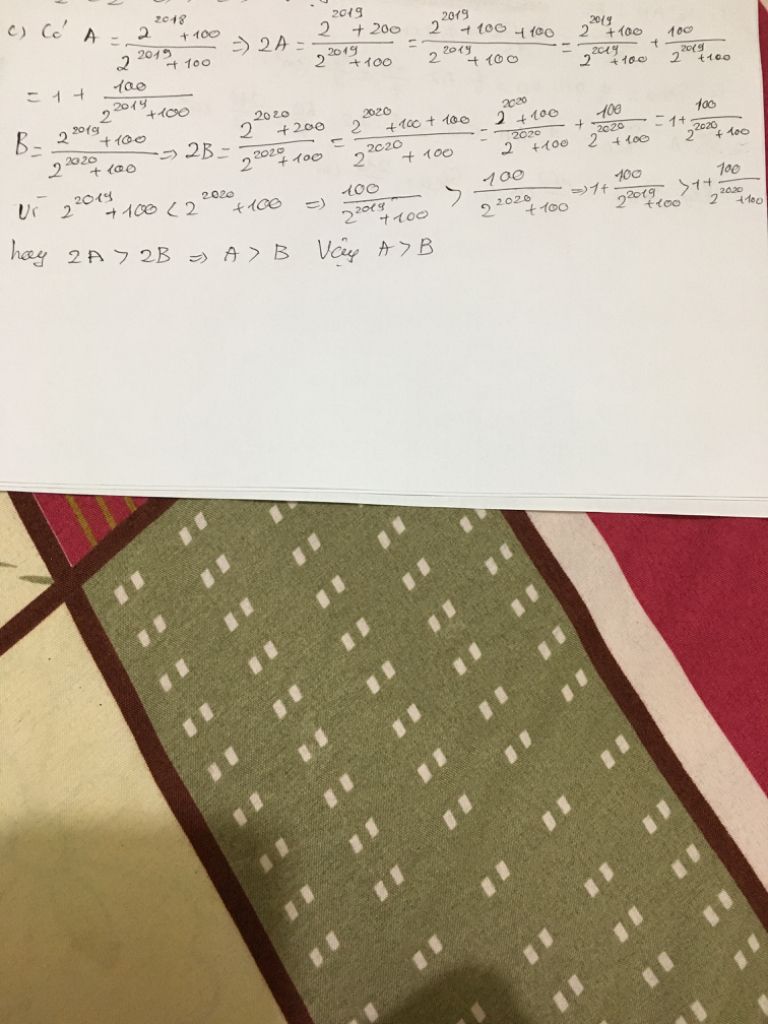 c) Có A = (2^2018 + 100)/(2^2019 + 100) => 2A = (2^2019 + 200)/(2^2019 + 100) = (2^2019 + 100 + 100)/(2^2019 + 100) = (2^2019 + 100)/(2^2019 + 100) + 100/(2^2019 + 100)
= 1 + 100/(2^2019 + 100)
B = (2^2019 + 100)/(2^2020 + 100) => 2B = (2^2020 + 200)/(2^2020 + 100) = (2^2020 + 100 + 100)/(2^2020 + 100) = (2^2020 + 100)/(2^2020 + 100) + 100/(2^2020 + 100) = 1 + 100/(2^2020 + 100)
Vì 2^2019 + 100 < 2^2020 + 100 => 100/(2^2019 + 100) > 100/(2^2020 + 100) => 1 + 100/(2^2019 + 100) > 1 + 100/(2^2020 + 100)
hay 2A > 2B => A > B Vậy A > B